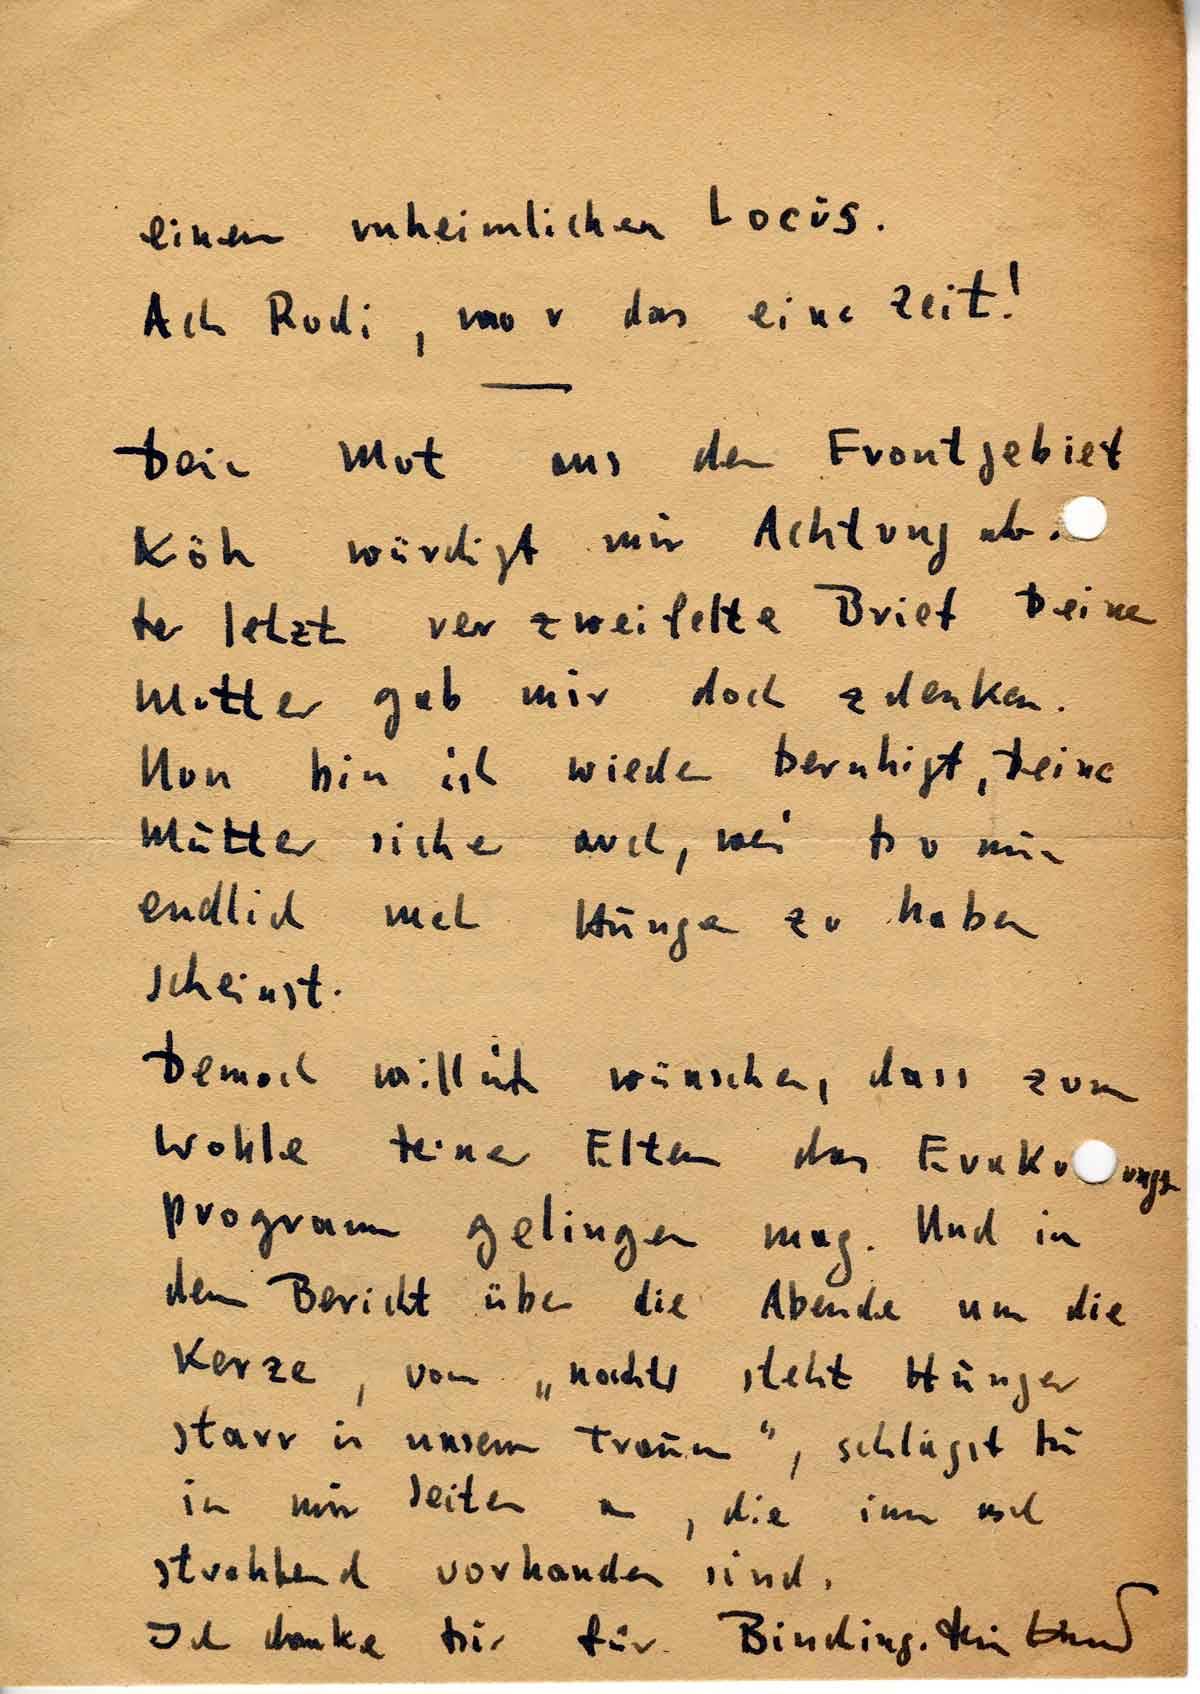 einen unheimlichen Locus.
Ach Rudi, war das eine Zeit!
Dein Mut aus dem Frontgebiet
Köln würdigt mir Achtung ab.
Der letzt verzweifelte Brief Deiner
Mutter gab mir doch z denken.
Nun bin ich wieder beruhigt, Deine
Mutter sicher auch, weil Du nun
endlich mehr Hunger zu haben
scheinst.
Dennoch will ich wünschen, dass zum
Wohle Deiner Eltern das Evaku ungs
programm gelingen mag. Und in
dem Bericht über die Abende um die
Kerze, vom „nachts steht Hunger
starr in unserm Traum“, schlägst Du
in mir Seiten an, die immer noch
strahlend vorhanden sind.
Ich danke Dir für Binding. Dein